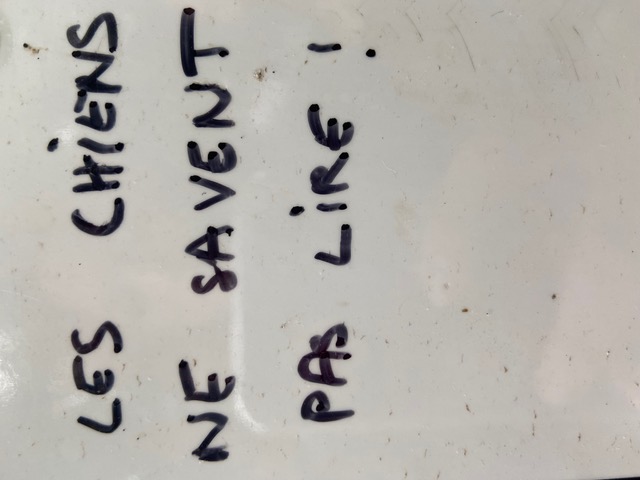 LES CHIENS
NE SAVENT
PAS LIRE !